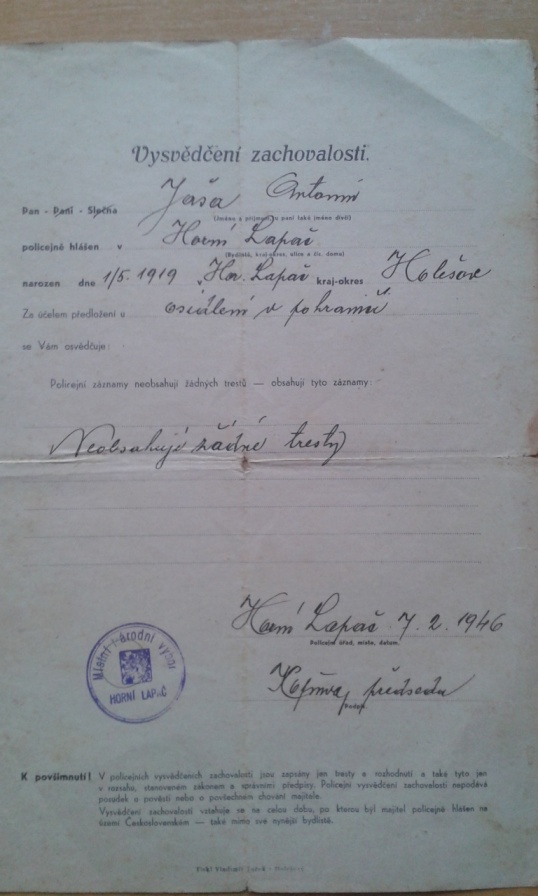 Vysvědčení zachovalosti.
Pan - Paní - Slečna Jaša Antonín
(Jméno a příjmení, u paní také jméno dívčí)
policejně hlášen v Horní Lapač
(Bydliště, kraj-okres, ulice a čís. domu)
narozen dne 1/5. 1919 v Hor. Lapač kraj-okres Holešov
Za účelem předložení u osídlení v pohraničí
se Vám osvědčuje:
Policejní záznamy neobsahují žádných trestů — obsahují tyto záznamy:
Neobsahují žádné tresty
Horní Lapač 7. 2. 1946
Policejní úřad, místo, datum.
předseda
Místní národní výbor
HORNÍ LAPAČ
K povšimnutí! V policejních vysvědčeních zachovalosti jsou zapsány jen tresty a rozhodnutí a také tyto jen
v rozsahu, stanoveném zákonem a správními předpisy. Policejní vysvědčení zachovalosti nepodává
posudek o pověsti nebo o povšechném chování majitele.
Vysvědčení zachovalosti vztahuje se na celou dobu, po kterou byl majitel policejně hlášen na
území Československém — také mimo své nynější bydliště.
Tiskl Vladimír